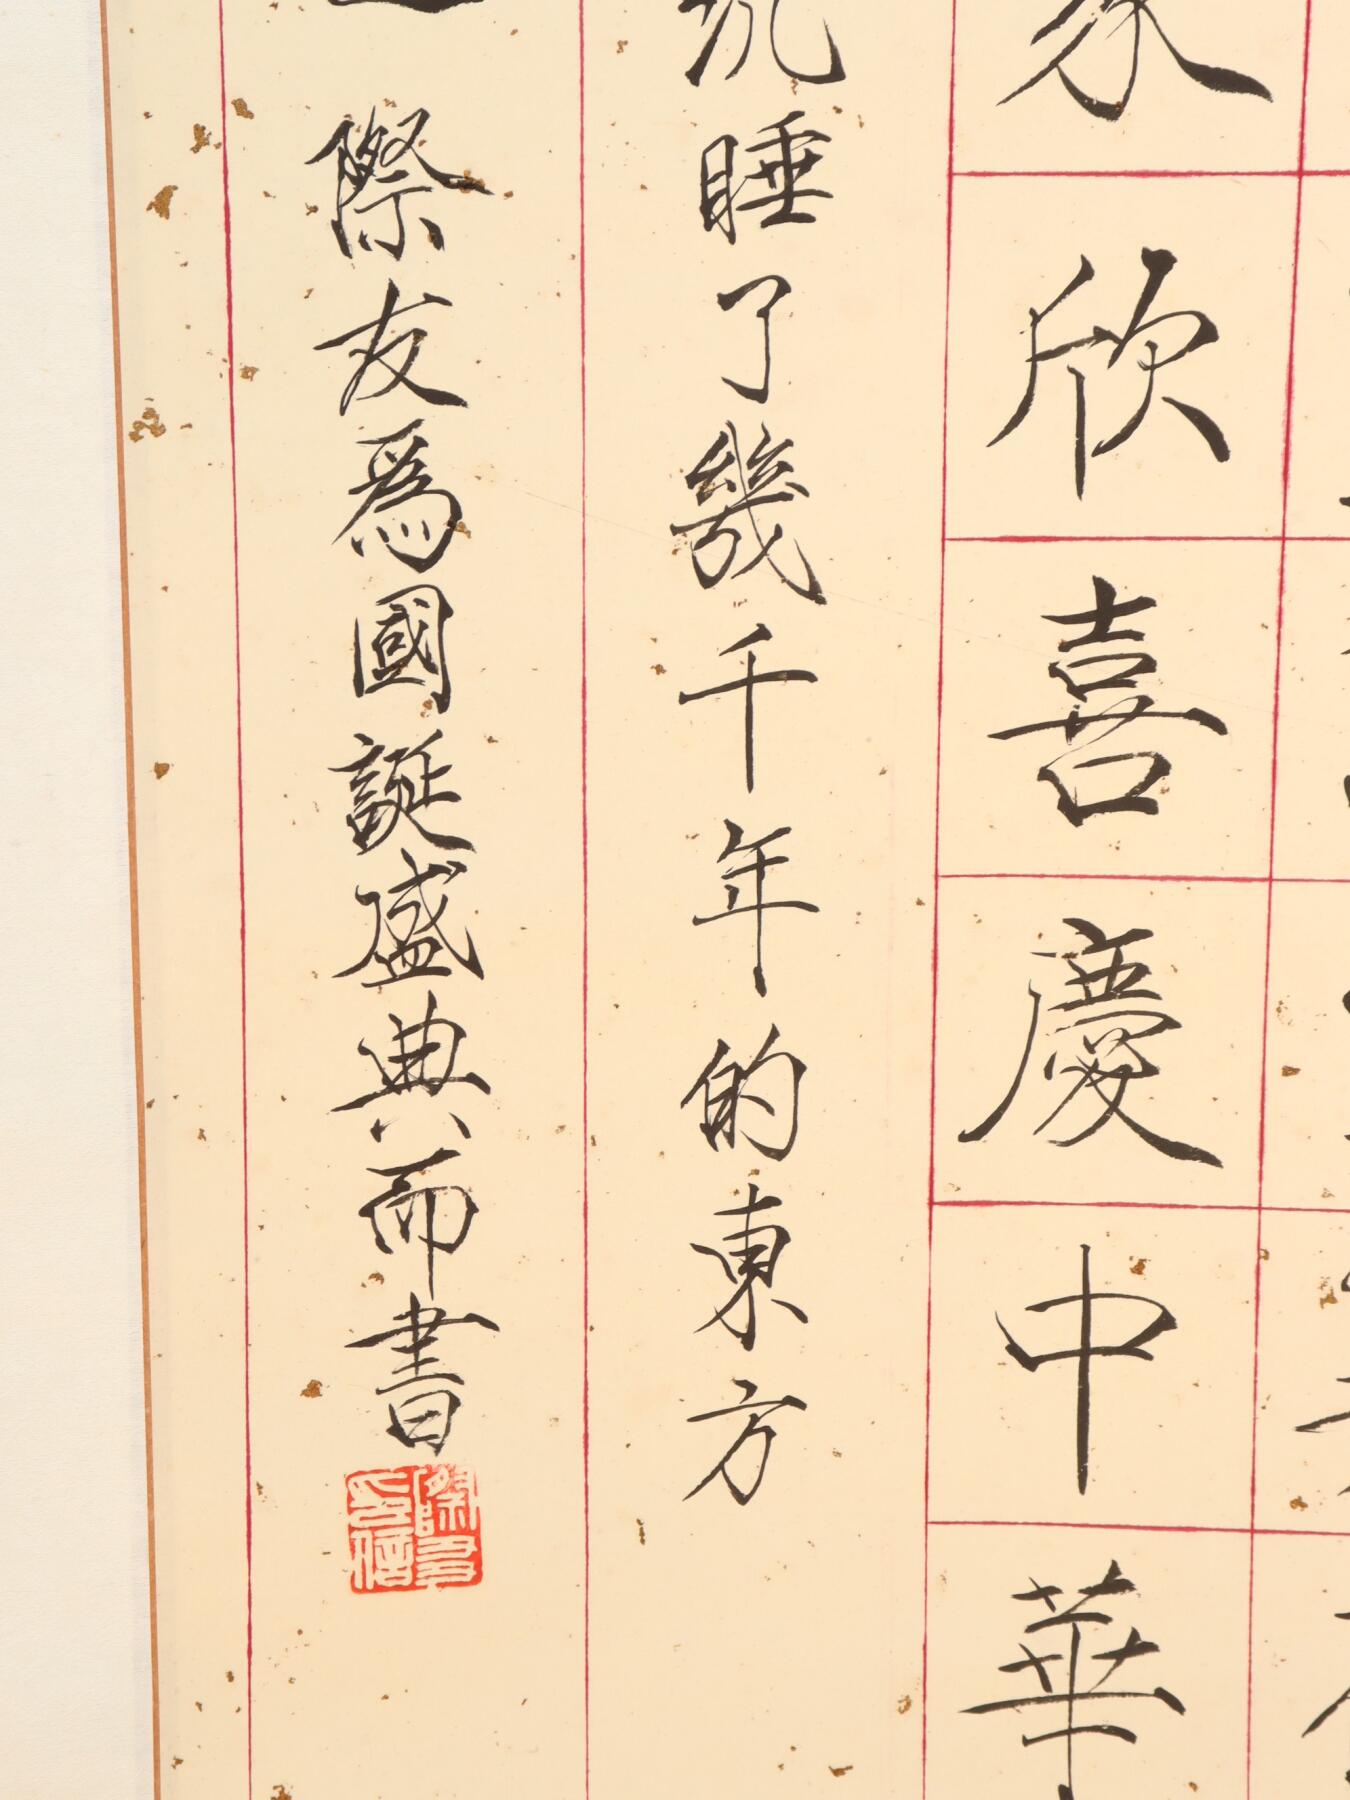 欣喜慶中華
睡了幾千年的東方
際友為國誕盛典而書
際友